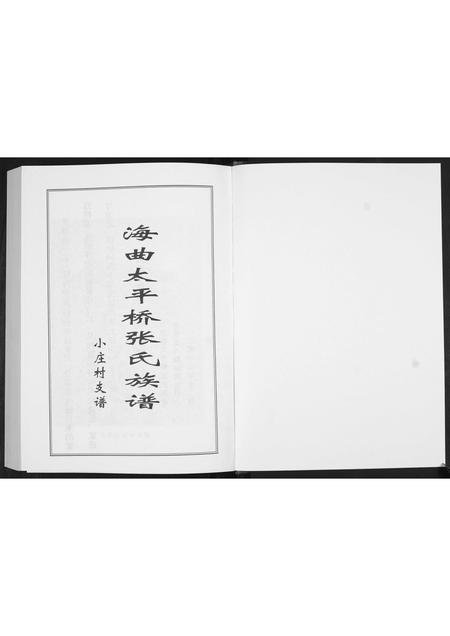 海曲太平桥张氏族谱
小庄村支谱